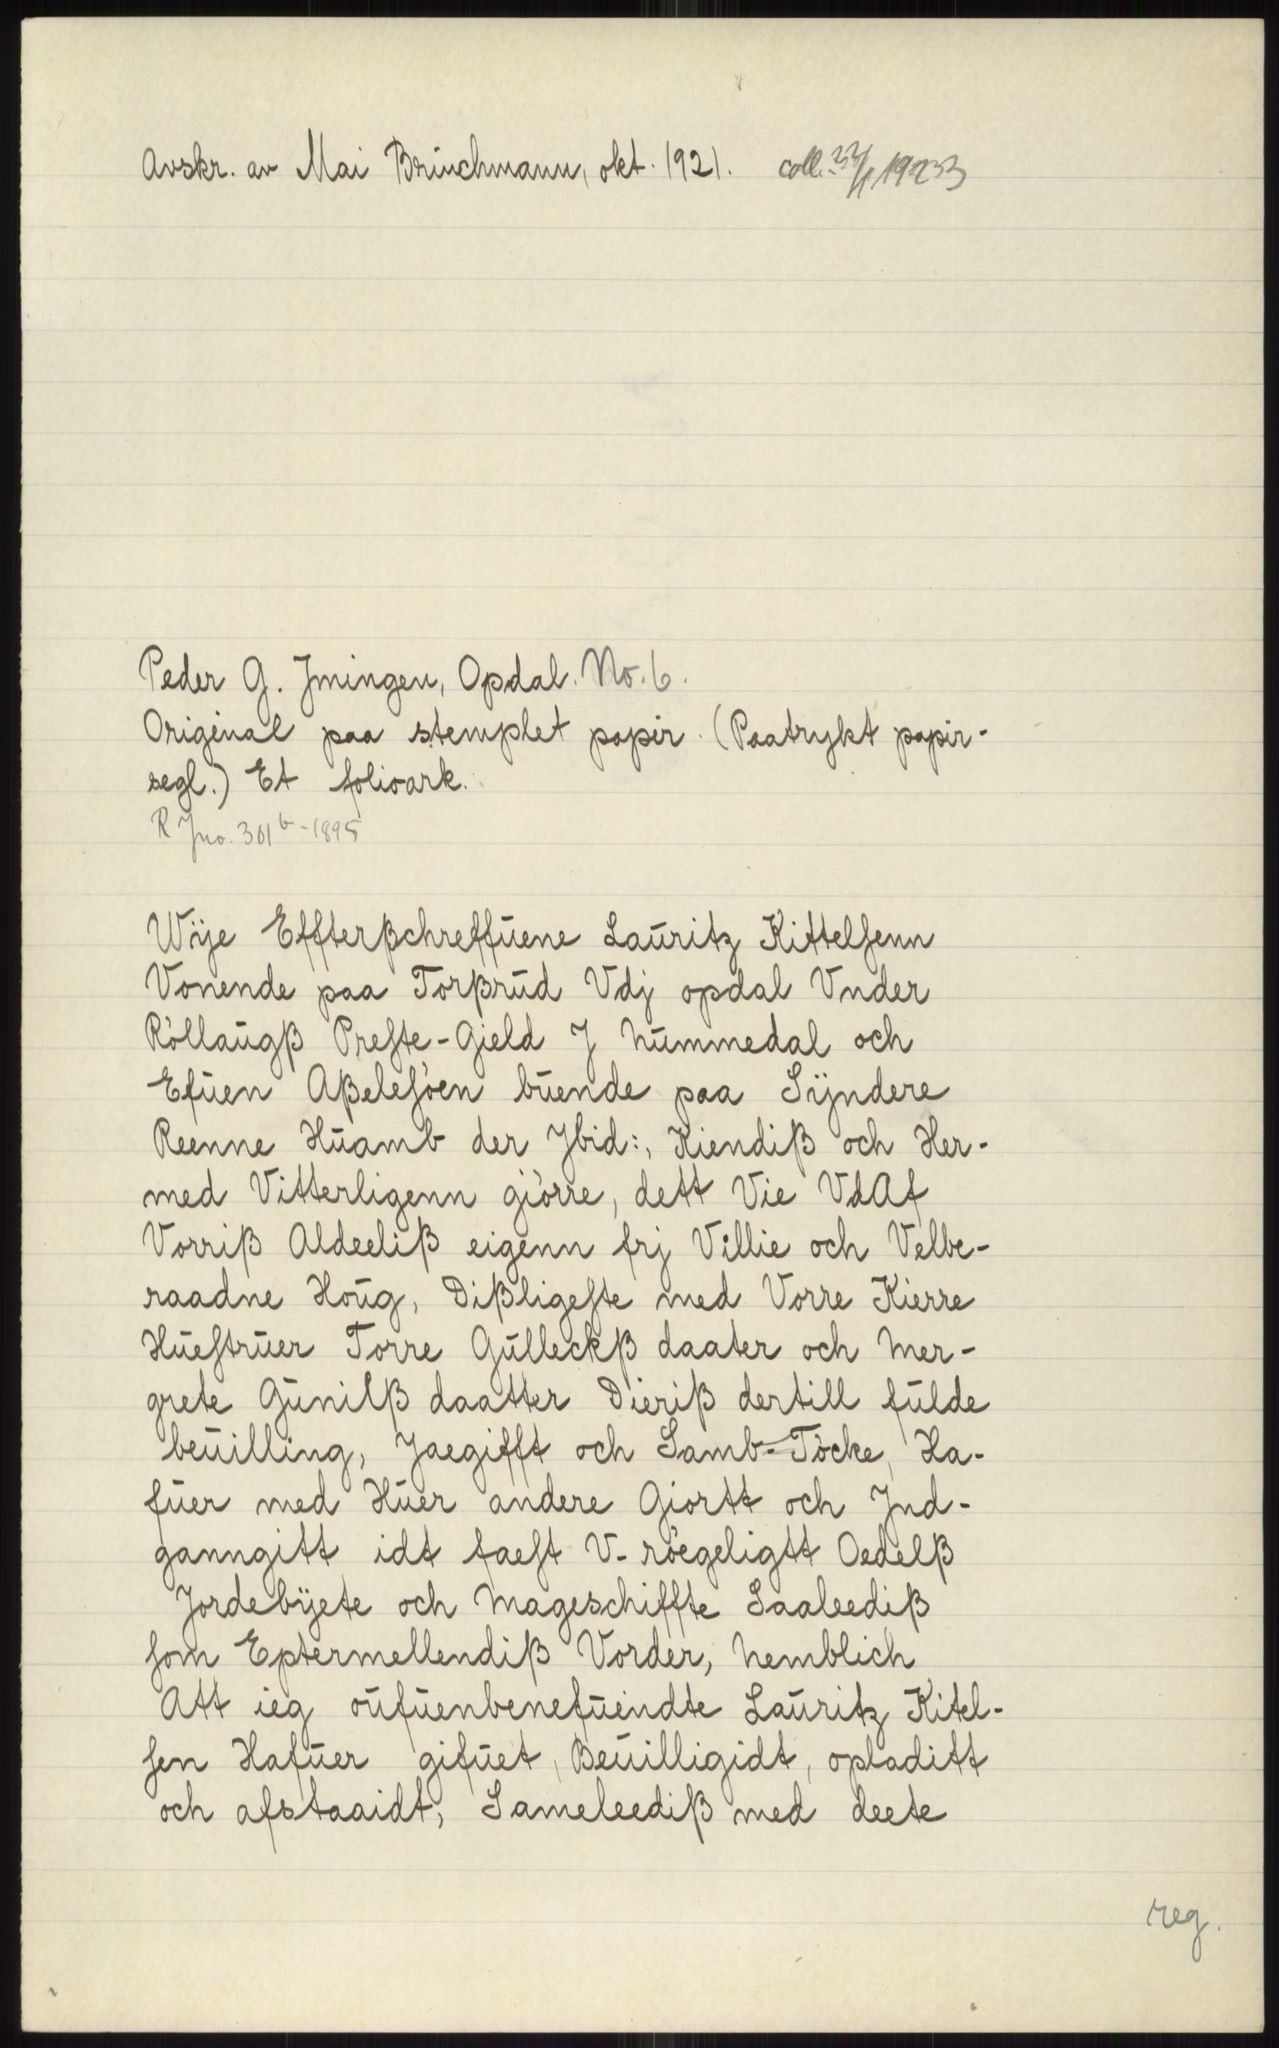 Avskr. av Mai Brinchmann, okt. 1921. coll.
Peder G. Jmingen, Opdal. No. 6.
Original paa stemplet papir. (Paatrykt papir-
segl.) Et folioark.
R Jno. 301 b - 1895
Wÿe Effterßchreffuene Lauritz Kittelsenn
Vonende paa Torßrud Vdj opdal Vnder
Röllaugß Preste-Gield J Nummedal och
Efuen Aßelesöen buende paa Sÿndere
Reenne Huamb der Jbid:, Kiendiß och Her-
med Vitterligenn giörre, dett Vie VdAf
Vorriß Aldeeliß eigenn frj Villie och Velbe-
raadne Houg, Dißligeste med Vorre Kierre
Huestruer Torre Gulleckß daater och Mer-
grete Gunilß daatter Dieriß dertill fulde
beuilling, Jaegifft och Samb-Töcke, Ha-
fuer med Huer andere Giortt och Jnd-
ganngitt idt faest V-röegeligtt Oedelß
Jordebÿete och Mageschiffte Saaleediß
som Eptermellendiß Vorder, Nemblich
Att ieg oufuenbenefuendte Lauritz Kitel-
sen Hafuer gifuet, Beuilligidt, opladitt
och afstaaidt, Sameleediß med deete
reg.